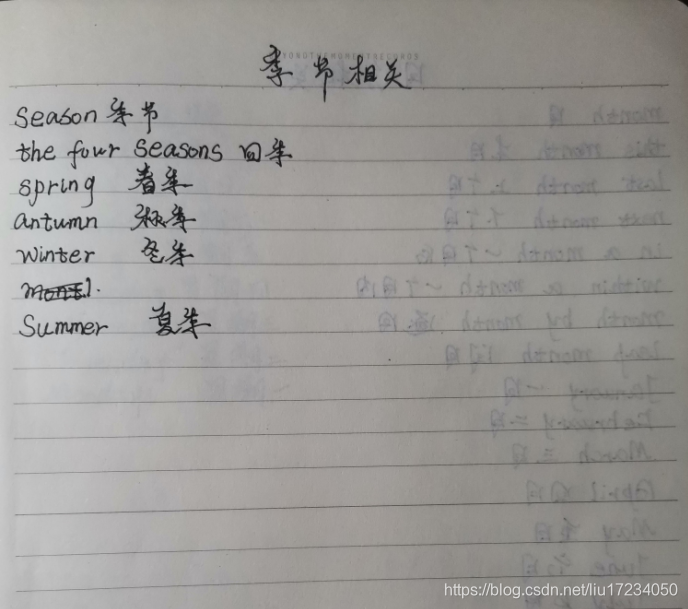 季节相关
season 季节
the four seasons 四季
spring 春季
antumn 秋季
winter 冬季
Summer 夏季
https://blog.csdn.net/liu17234050